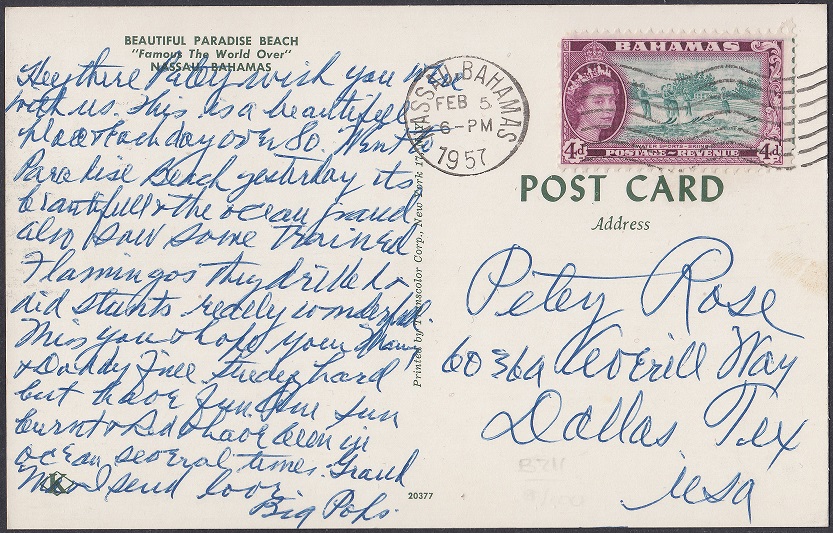 BEAUTIFUL PARADISE BEACH
"Famous The World Over"
NASSAU, BAHAMAS
Hey there Petey wish you were
with us. This is a beautiful
place & each day over 80. Went to
Paradise Beach yesterday its
beautiful & the ocean grand
also saw some trained
Flamingos they drilled &
did stunts really wonderful.
Miss you & hope your Mamy
& Daddy fine. Study hard
but have fun. Am sun
burnt & Red & have been in
ocean several times. Grand
Mo & I send love
Big Pops.
K
20377
Printed by Transcolor Corp., New York 17,
NASSAU BAHAMAS
FEB 5
6-PM
1957
BAHAMAS
WATER SPORTS - SKIING
4d POSTAGE - REVENUE 4d
POST CARD
Address
Petey Rose
Way
Dallas Tex
USA
B211